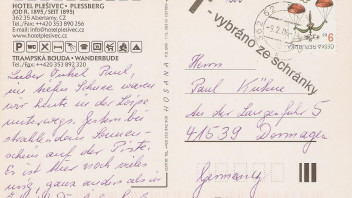 HOTEL PLEŠIVEC • PLESSBERG
(OD R. 1895 / SEIT 1895)
362 35 Abertamy, CZ
Tel./Fax: ++420 353 892
E-mail:
www.hotelplesivec.cz
TRAMPSKÁ BOUDA • WANDERBUDE
Tel./Fax: ++420 353 892 320
HOSANA
vybráno ze schránky
ČESKÁ REPUBLIKA
9
Lieber Onkel Paul,
im hohen Schnee waren
wir heute in der Loipe
unterwegs. Gestern bei
strahlendem Sonnen-
schein auf der Piste.
Es ist hier noch viel
ganz anders als in
Herrn
Paul Kühne
An der Langenfuhr 5
41539 Dormagen
Germany